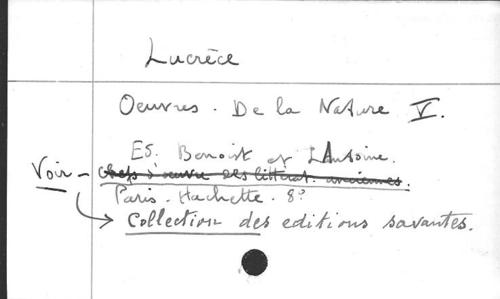 Lucrèce
Oeuvres. De la Nature V.
Ed. Benoist et Lantoine.
Voir - Chefs d'œuvre des littérat. anciennes.
Paris. Hachette. 8º
Collection des editions savantes.